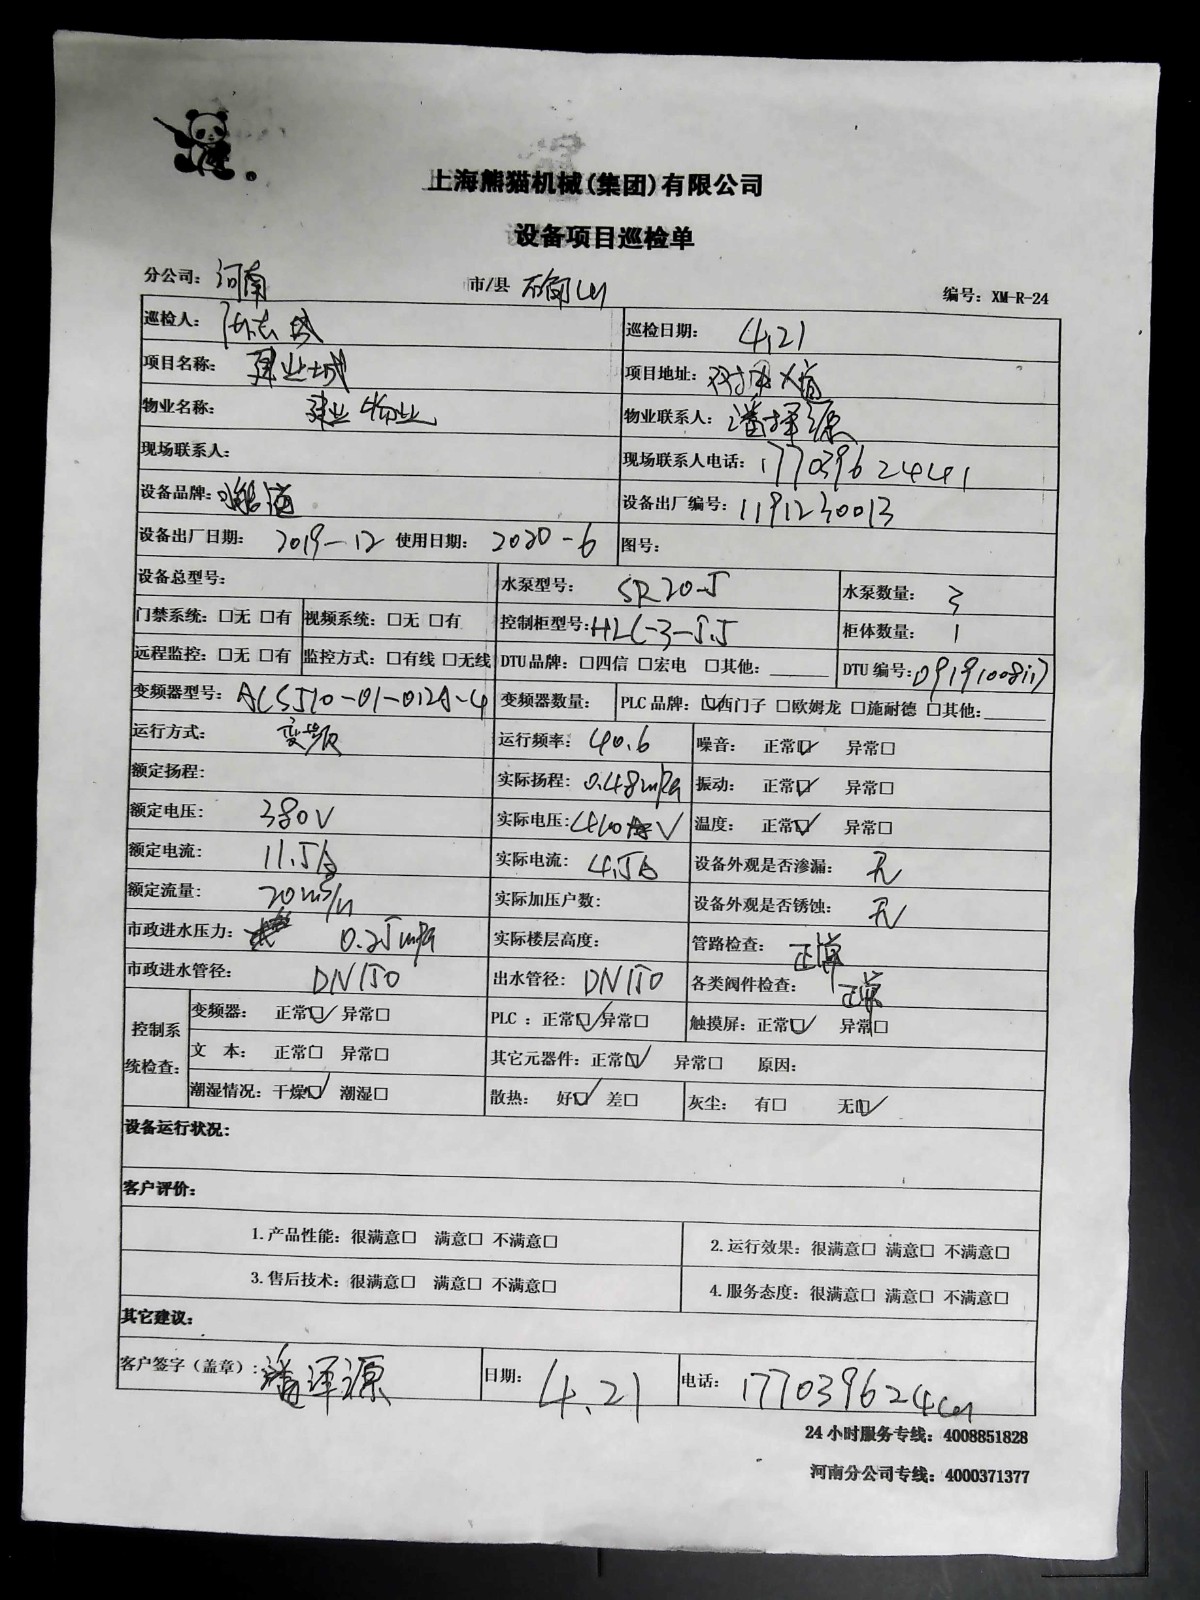 上海熊猫机械(集团)有限公司
设备项目巡检单
分公司: 河南 市/县 确山 编号: XM-R-24
巡检人: 巡检日期: 4.21
项目名称: 建业城 项目地址:
物业名称: 建业物业 物业联系人: 潘泽源
现场联系人: 现场联系人电话: 17703962441
设备品牌: 设备出厂编号: 1191230013
设备出厂日期: 2019-12 使用日期: 2020-6 图号:
设备总型号: 水泵型号: SR20-5 水泵数量: 3
门禁系统: □无 □有 视频系统: □无 □有 控制柜型号: HLC-3-5.5 柜体数量: 1
远程监控: □无 □有 监控方式: □有线 □无线 DTU品牌: □四信 □宏电 □其他: DTU编号:
变频器型号: ACS510-01-012A-4 变频器数量: PLC品牌: ☑西门子 □欧姆龙 □施耐德 □其他:
运行方式: 变频 运行频率: 40.6 噪音: 正常☑ 异常□
额定扬程: 实际扬程: 0.48mPa 振动: 正常☑ 异常□
额定电压: 380V 实际电压: 410 V 温度: 正常☑ 异常□
额定电流: 11.5A 实际电流: 4.5A 设备外观是否渗漏: 无
额定流量: 20m³/h 实际加压户数: 设备外观是否锈蚀: 无
市政进水压力: 0.25mPa 实际楼层高度: 管路检查: 正常
市政进水管径: DN150 出水管径: DN150 各类阀件检查: 正常
控制系统检查: 变频器: 正常☑ 异常□ PLC : 正常☑ 异常□ 触摸屏: 正常☑ 异常□
文 本: 正常□ 异常□ 其它元器件: 正常☑ 异常□ 原因:
潮湿情况: 干燥☑ 潮湿□ 散热: 好☑ 差□ 灰尘: 有□ 无☑
设备运行状况:
客户评价:
1.产品性能: 很满意□ 满意□ 不满意□ 2.运行效果: 很满意□ 满意□ 不满意□
3.售后技术: 很满意□ 满意□ 不满意□ 4.服务态度: 很满意□ 满意□ 不满意□
其它建议:
客户签字（盖章）: 潘泽源 日期: 4.21 电话: 17703962441
24小时服务专线: 4008851828
河南分公司专线: 4000371377